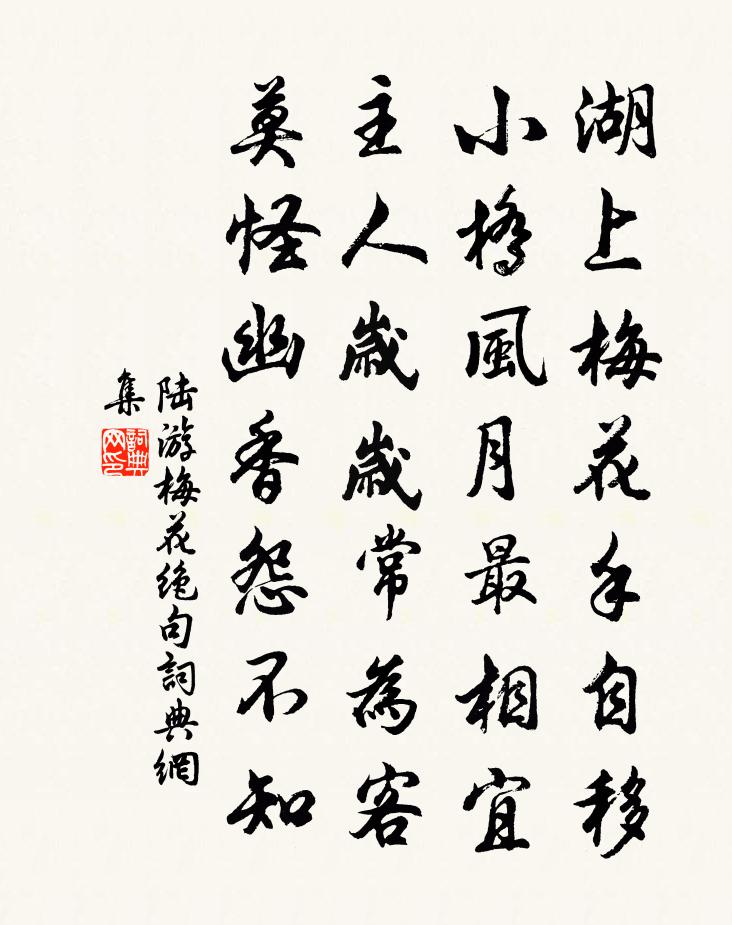 湖上梅花手自移
小橋風月最相宜
主人歲歲常為客
莫怪幽香怨不知
陸游梅花絶句詞典網
集
詞典网印